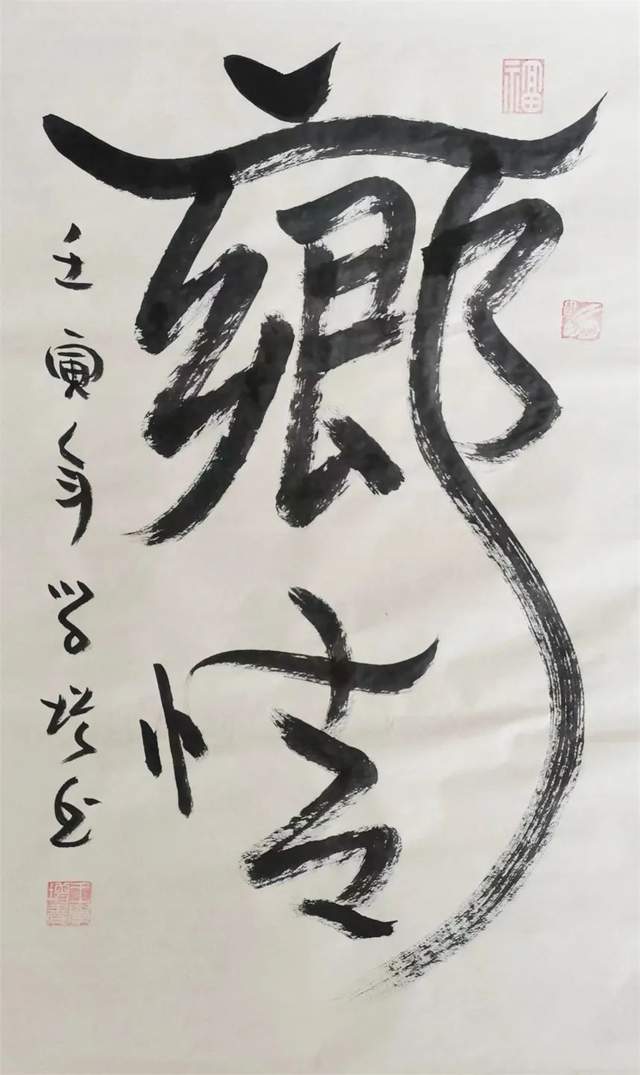 福
鄉情
壬寅年学书